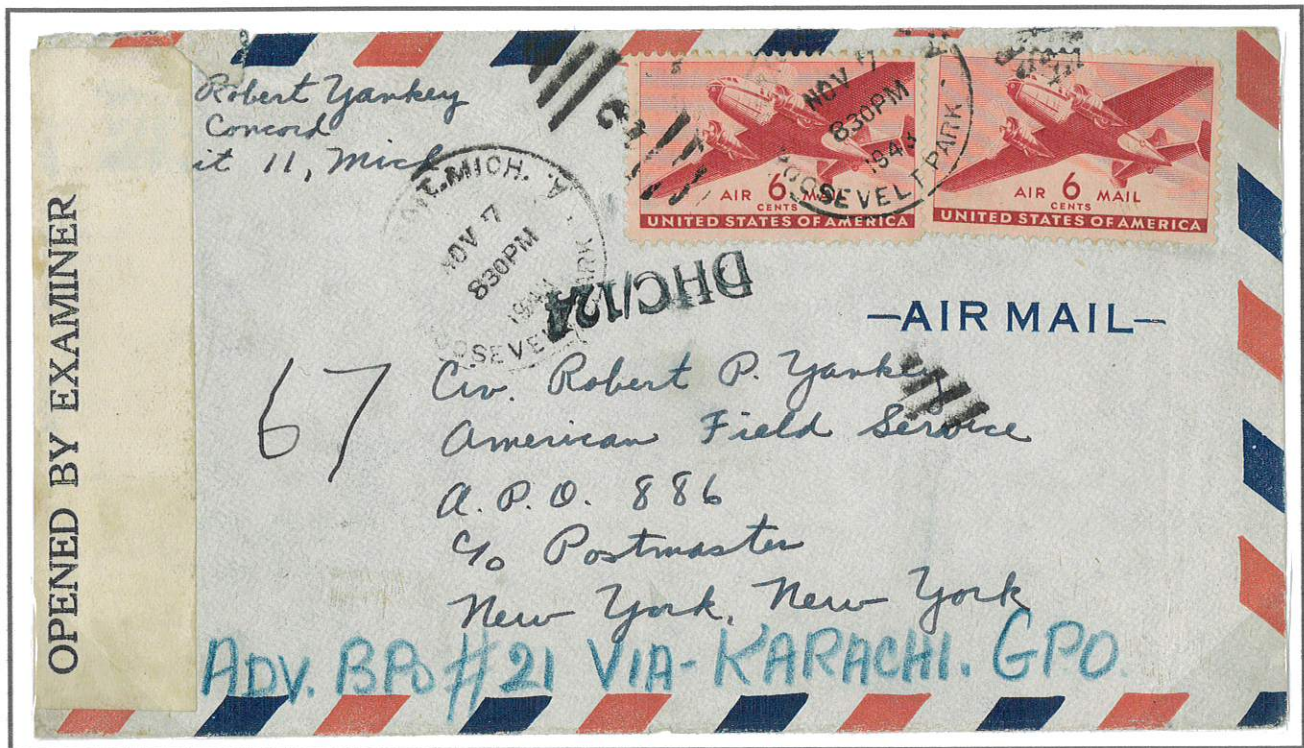 OPENED BY EXAMINER
Robert Yankey
Concord
it 11, Mich
MICH. A
NOV 7
830PM
194
OOSEVE
NOV 7
830PM
1943
OOSEVELT PARK - A
AIR 6 MAIL
CENTS
UNITED STATES OF AMERICA
AIR 6 MAIL
CENTS
UNITED STATES OF AMERICA
DHC/124
—AIR MAIL—
67
Civ. Robert P. Yankey
American Field Service
A.P.O. 886
c/o Postmaster
New York, New York
ADV. BPO #21 VIA-KARACHI. GPO.